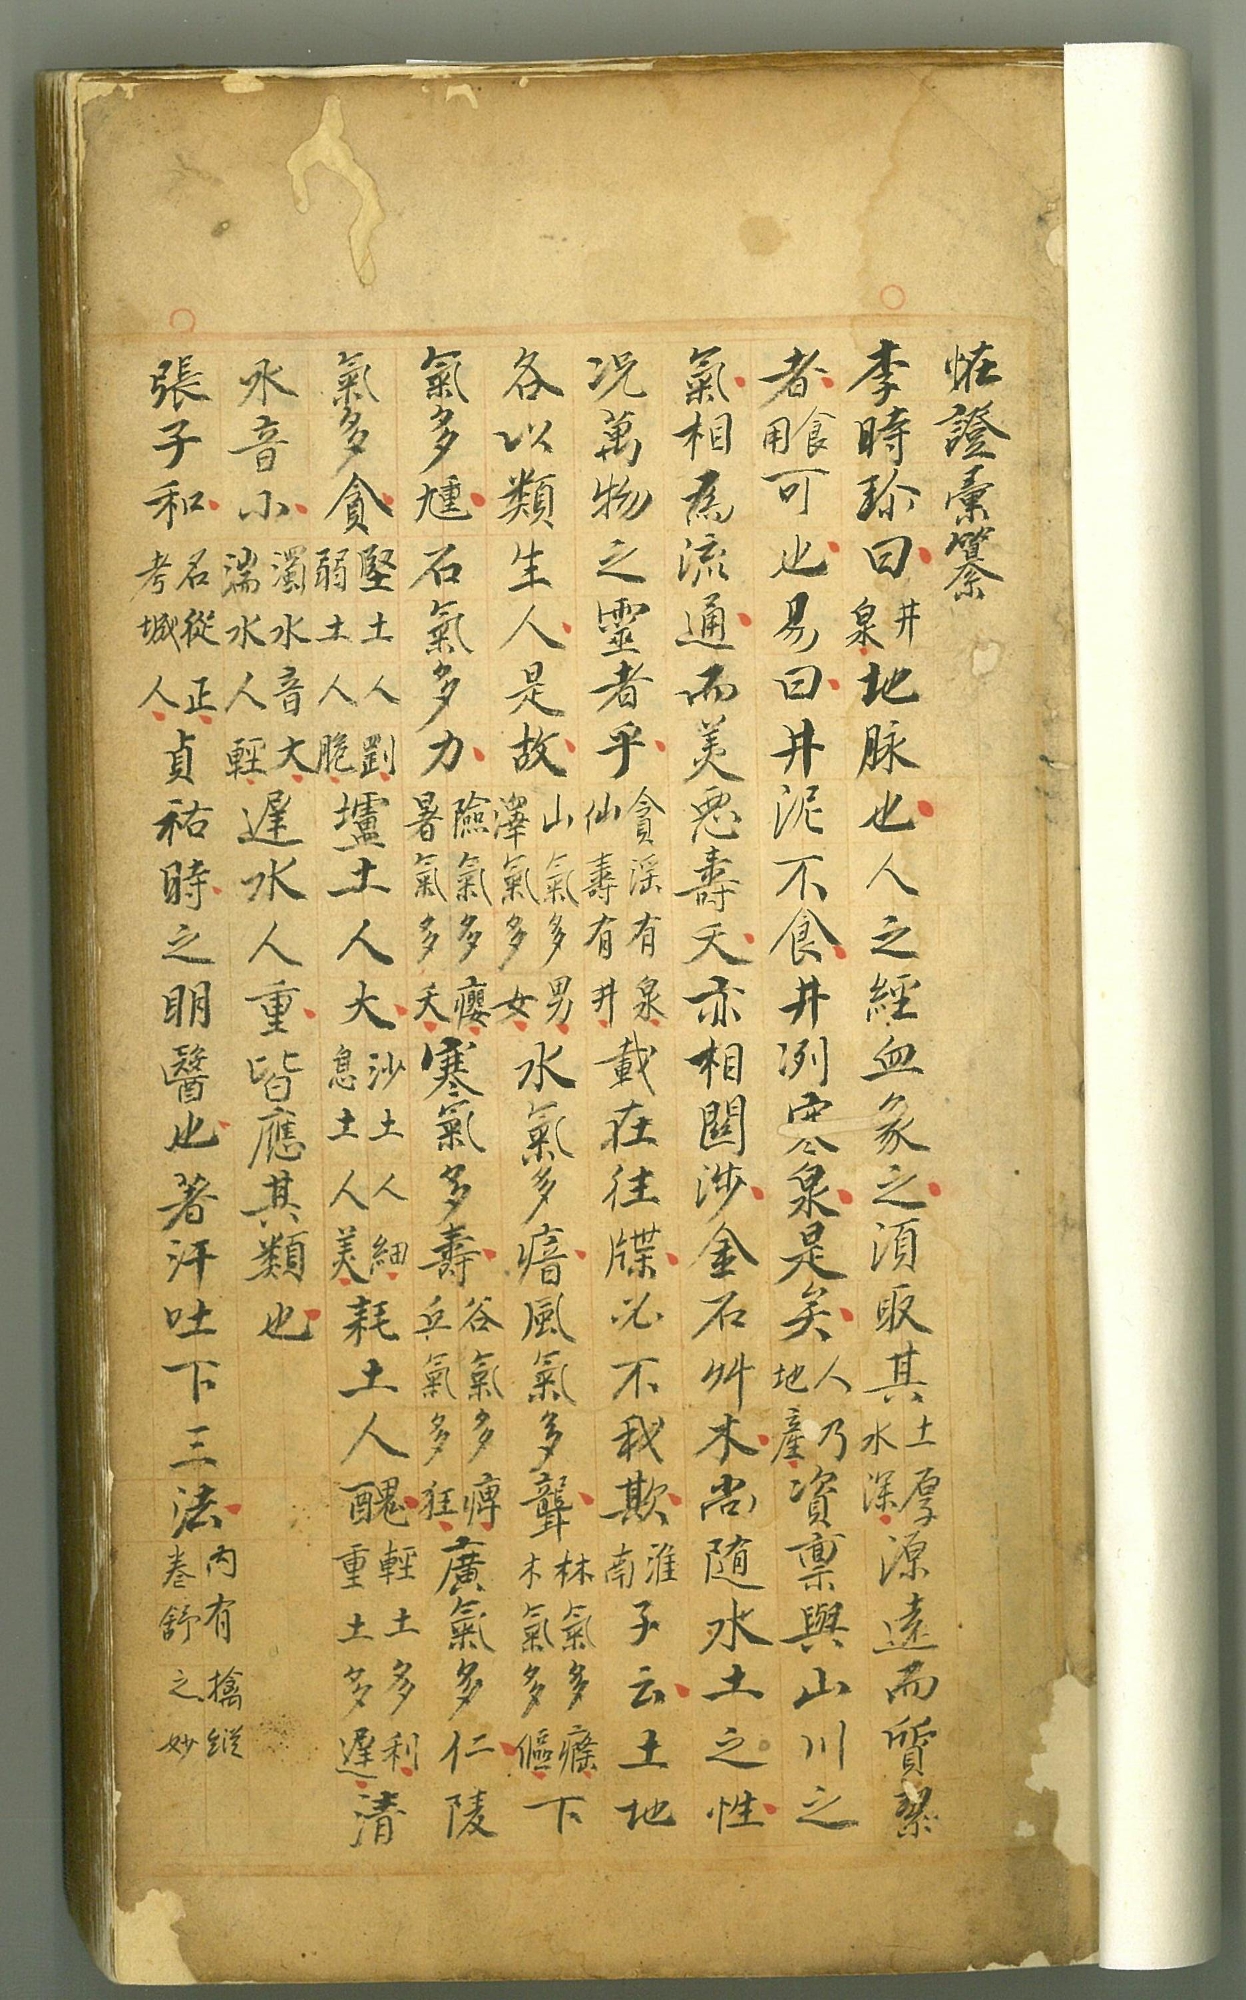 怪證彙纂
李時珍曰井泉地脉也人之經血象之須取其土厚水深源遠而質絜
者食用可也易曰井泥不食井冽寒泉是矣人乃地產資禀與山川之
氣相爲流通而美惡壽夭亦相関涉金石艸木尚随水土之性
况萬物之靈者乎貪滛有泉仙壽有井載在往牒必不我欺淮南子云土地
各以類生人是故山氣多男澤氣多女水氣多瘖風氣多聾林氣多癃木氣多傴下
氣多尰石氣多力險氣多癭暑氣多夭寒氣多壽谷氣多痺丘氣多狂廣氣多仁陵
氣多貪堅土人剛弱土人脆壚土人大沙土人細息土人美耗土人醜輕土多利重土多遲清
水音小濁水音大湍水人輕遲水人重皆應其類也
張子和名從正考城人貞祐時之明醫也著汗吐下三法内有擒縱卷舒之妙